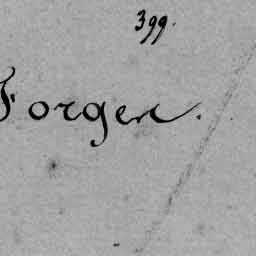 399.
Forgen.